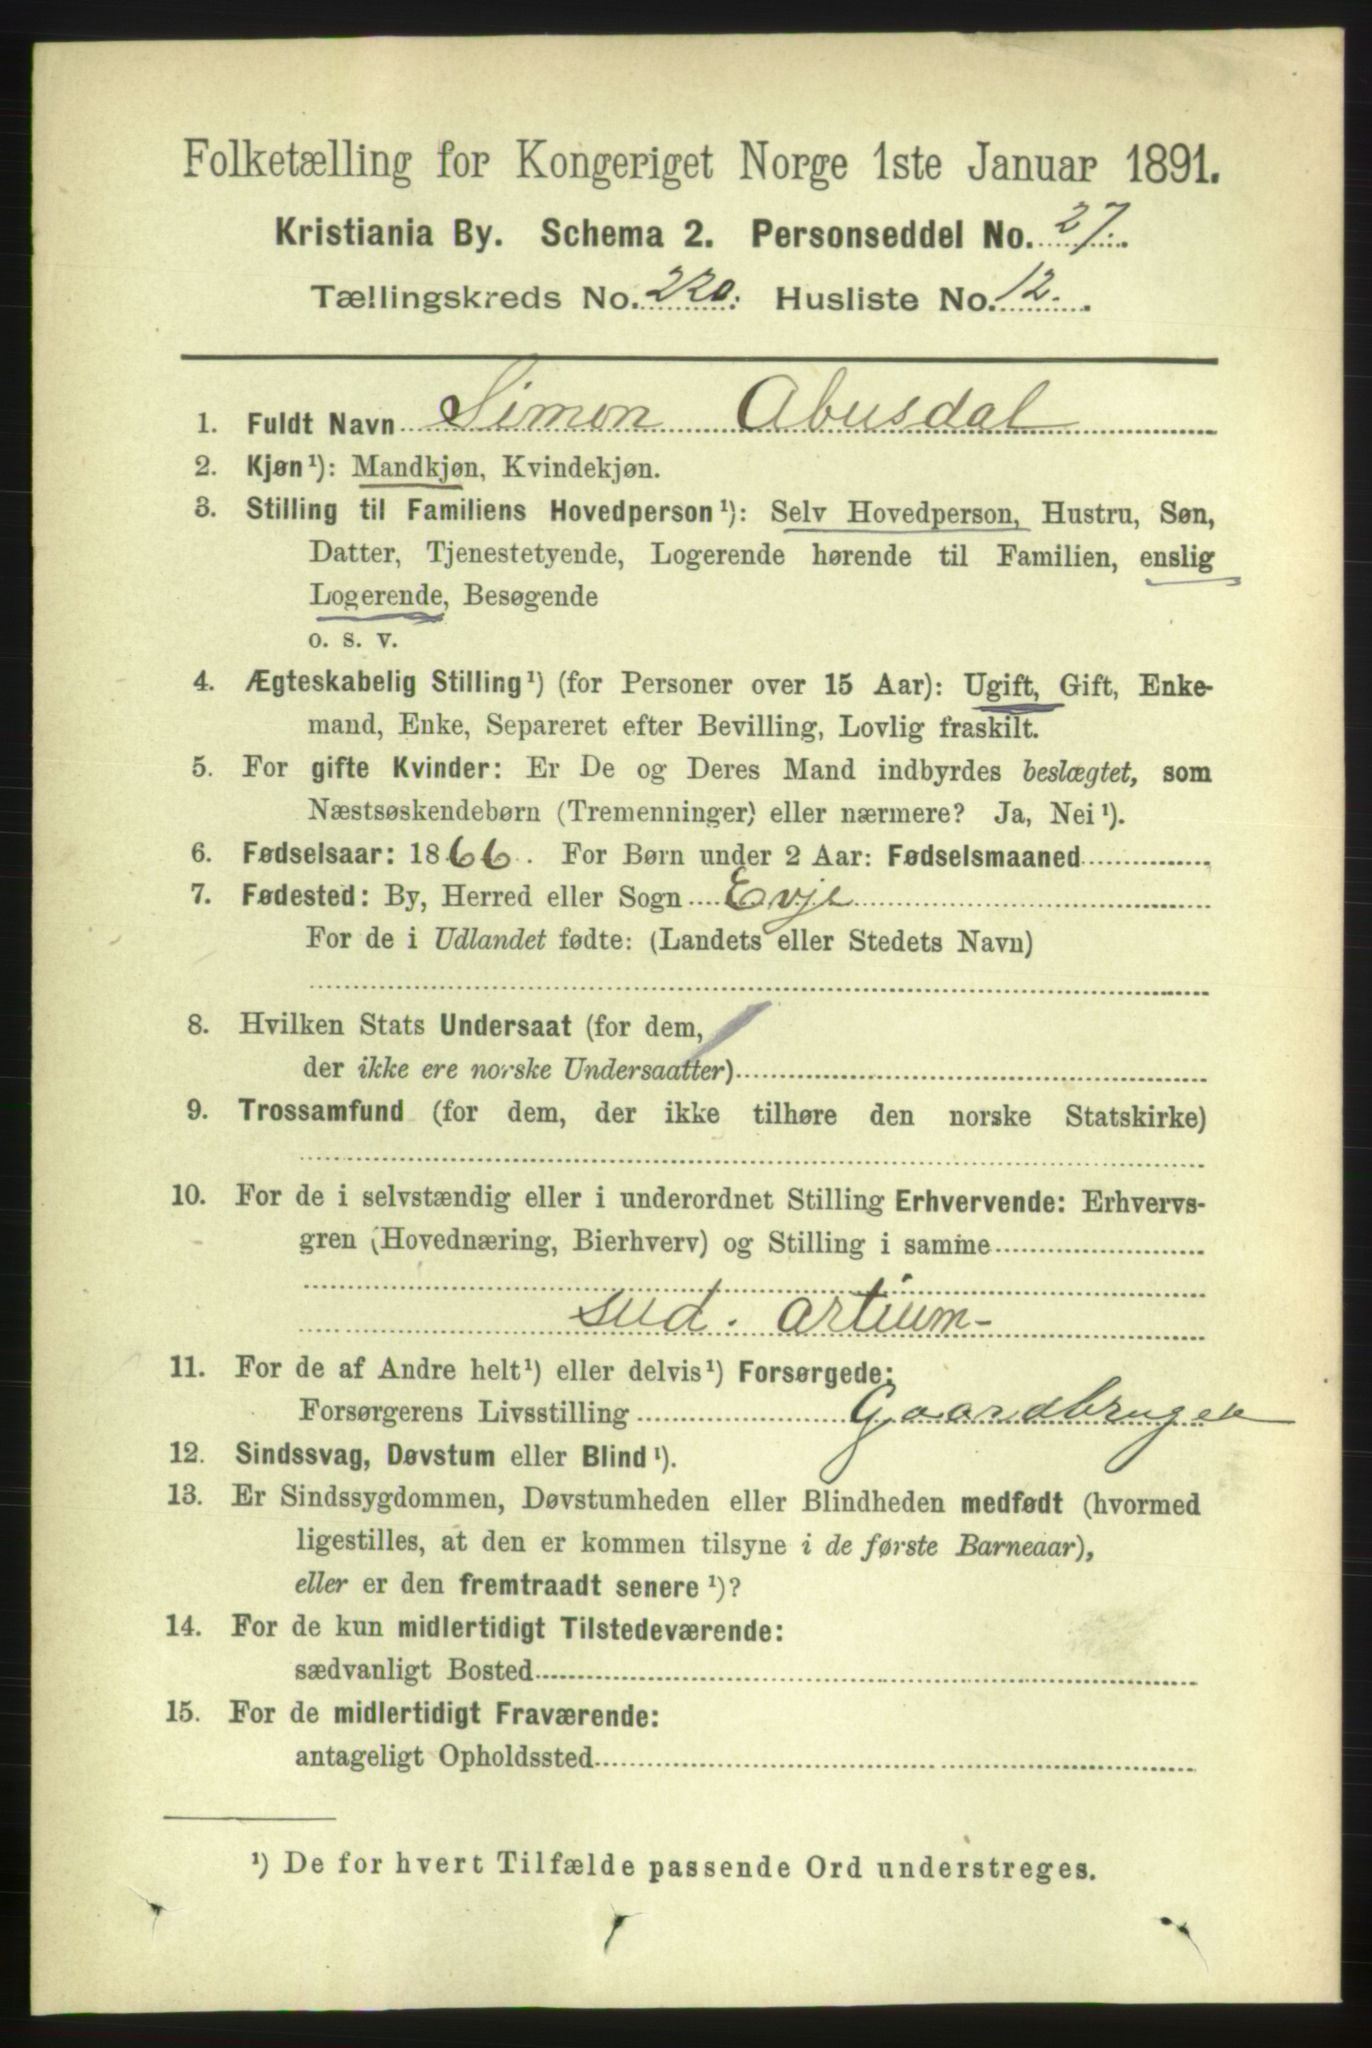 Folketælling for Kongeriget Norge 1ste Januar 1891.
Kristiania By. Schema 2. Personseddel No. 27.
Tællingskreds No. 220. Husliste No. 12.
1. Fuldt Navn Simon Abusdal
2. Kjøn¹): Mandkjøn, Kvindekjøn.
3. Stilling til Familiens Hovedperson¹): Selv Hovedperson, Hustru, Søn,
Datter, Tjenestetyende, Logerende hørende til Familien, enslig
Logerende, Besøgende
o. s. v.
4. Ægteskabelig Stilling¹) (for Personer over 15 Aar): Ugift, Gift, Enke-
mand, Enke, Separeret efter Bevilling, Lovlig fraskilt.
5. For gifte Kvinder: Er De og Deres Mand indbyrdes beslægtet, som
Næstsøskendebørn (Tremenninger) eller nærmere? Ja, Nei¹).
6. Fødselsaar: 1866. For Børn under 2 Aar: Fødselsmaaned
7. Fødested: By, Herred eller Sogn Evje
For de i Udlandet fødte: (Landets eller Stedets Navn)
8. Hvilken Stats Undersaat (for dem,
der ikke ere norske Undersaatter)
9. Trossamfund (for dem, der ikke tilhøre den norske Statskirke)
10. For de i selvstændig eller i underordnet Stilling Erhvervende: Erhvervs-
gren (Hovednæring, Bierhverv) og Stilling i samme
sud. artium-
11. For de af Andre helt¹) eller delvis¹) Forsørgede:
Forsørgerens Livsstilling Gaardbruger
12. Sindssvag, Døvstum eller Blind¹).
13. Er Sindssygdommen, Døvstumheden eller Blindheden medfødt (hvormed
ligestilles, at den er kommen tilsyne i de første Barneaar),
eller er den fremtraadt senere¹)?
14. For de kun midlertidigt Tilstedeværende:
sædvanligt Bosted
15. For de midlertidigt Fraværende:
antageligt Opholdssted
¹) De for hvert Tilfælde passende Ord understreges.